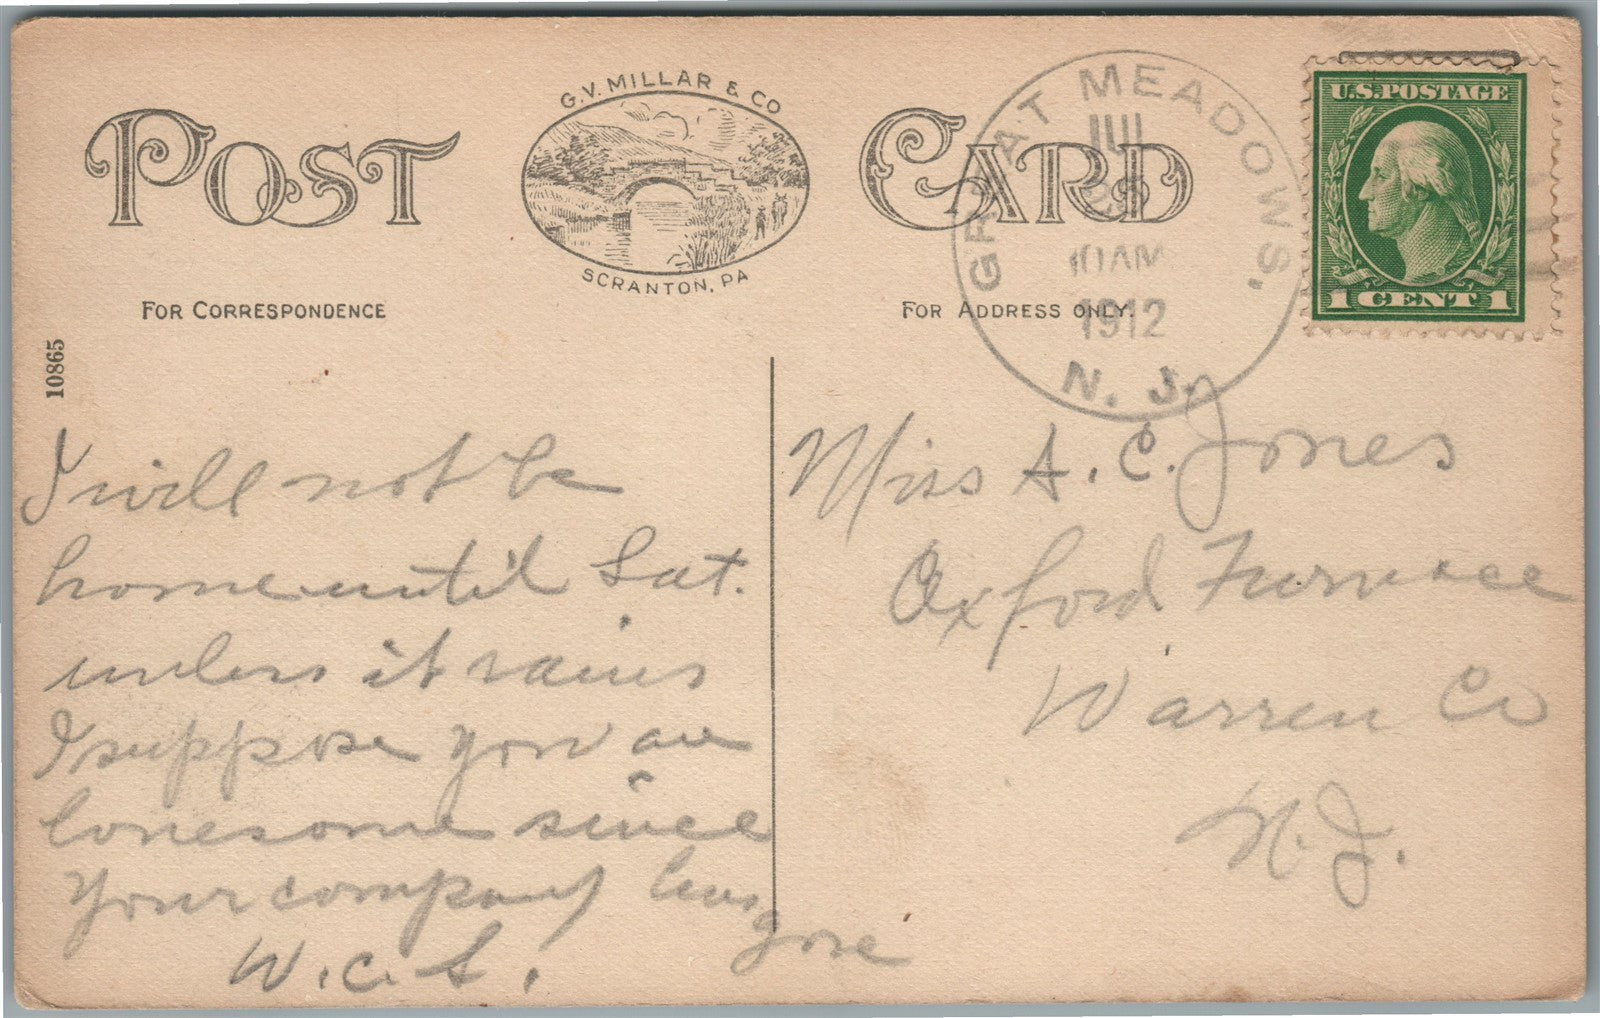 POST CARD
G.V. MILLAR & CO
SCRANTON, PA
FOR CORRESPONDENCE
FOR ADDRESS ONLY.
10865
GREAT MEADOWS,
JUL
10AM
1912
N. J.
U.S. POSTAGE
1 CENT 1
I will not be
home until Sat.
unless it rains
I suppose you are
lonesome since
your company has
gone
W.C.S.
Miss A. C. Jones
Oxford Furnace
Warren Co
N. J.